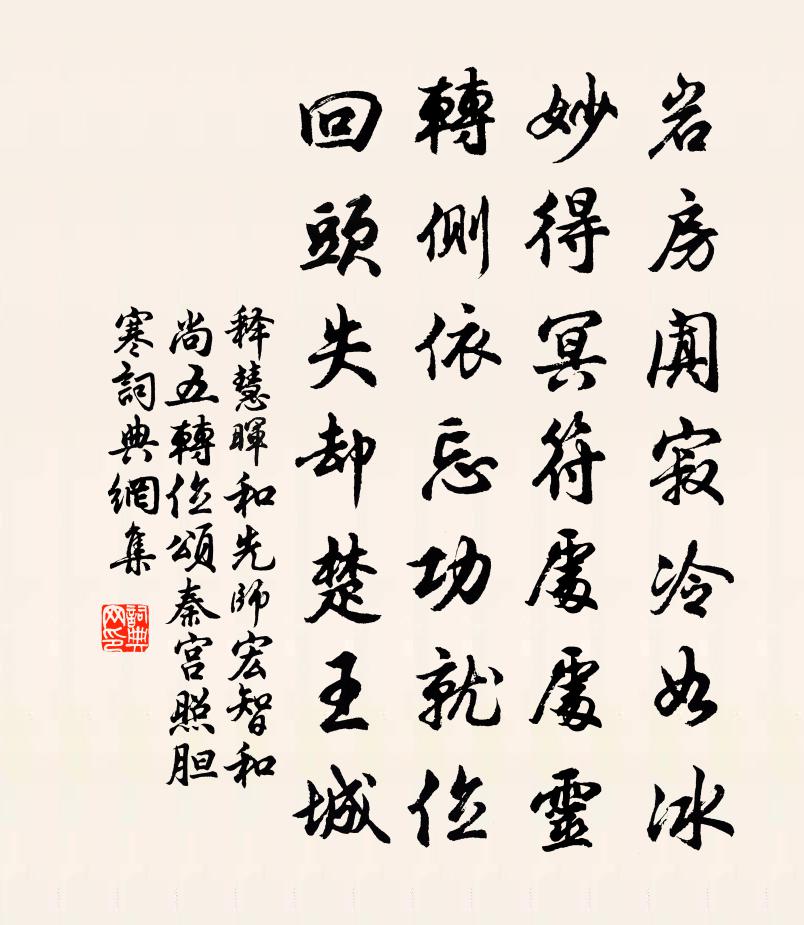 岩房闃寂冷如冰
妙得冥符處處靈
轉側依忘功就位
回頭失却楚王城
释慧暉和先師宏智和
尚五轉位頌秦宫照胆
寒詞典網集
詞典
网印